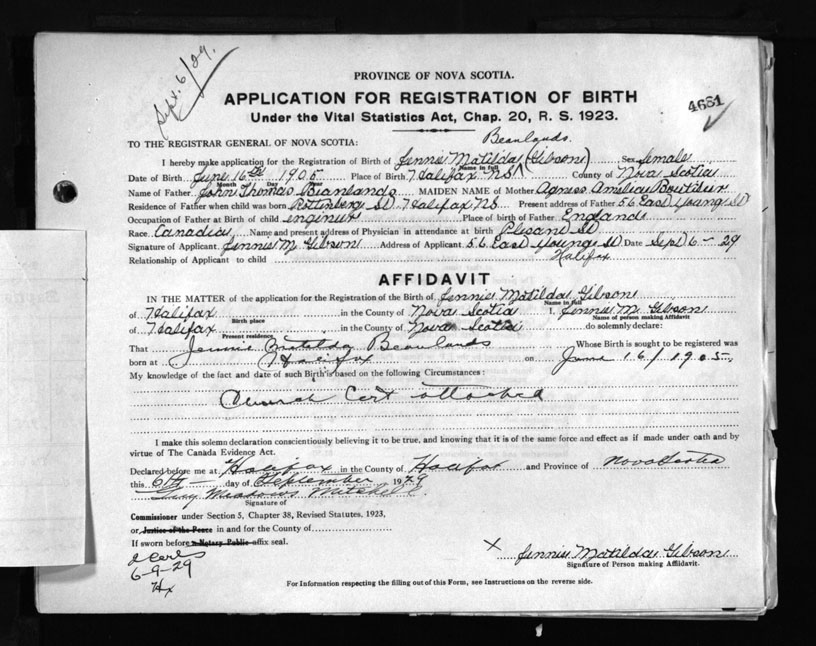 Sept. 6/29.
PROVINCE OF NOVA SCOTIA.
APPLICATION FOR REGISTRATION OF BIRTH
4661
Under the Vital Statistics Act, Chap. 20, R. S. 1923.
TO THE REGISTRAR GENERAL OF NOVA SCOTIA:
Beanlands.
I hereby make application for the Registration of Birth of Jennie Matilda (Gibson) Sex female
Name in full
Date of Birth June 16th 1905 Place of Birth Halifax NS County of Nova Scotia
Month Day Year
Name of Father John Thomas Beanlands MAIDEN NAME of Mother Agness Amelia Boutilier
Residence of Father when child was born Rottenberg St Halifax NS Present address of Father 56 East Young St
Occupation of Father at Birth of child enginer Place of birth of Father England
Race Canadia Name and present address of Physician in attendance at birth St
Signature of Applicant Jennie M Gibson Address of Applicant 56 East Young St Date Sept 6 - 29
Relationship of Applicant to child Halifax
AFFIDAVIT
IN THE MATTER of the application for the Registration of the Birth of Jennie Matilda Gibson
Name in full
of Halifax in the County of Nova Scotia I, Jennie M Gibson
Birth place Name of person making Affidavit
of Halifax in the County of Nova Scotia do solemnly declare:
Present residence
That Jennie Matilda Beanlands Whose Birth is sought to be registered was
born at Halifax on June 16/1905
My knowledge of the fact and date of such Birth is based on the following Circumstances:
Church Cert attached
I make this solemn declaration conscientiously believing it to be true, and knowing that it is of the same force and effect as if made under oath and by
virtue of The Canada Evidence Act.
Declared before me at Halifax in the County of Halifax and Province of Nova Scotia
this 6th day of September 1929
Meadows Mitchell
Signature of
Commissioner under Section 5, Chapter 38, Revised Statutes, 1923,
or Justice of the Peace in and for the County of
If sworn before a Notary Public affix seal.
2 Certs
6-9-29
Hx
X Jennie Matilda Gibson
Signature of Person making Affidavit.
For Information respecting the filling out of this Form, see Instructions on the reverse side.